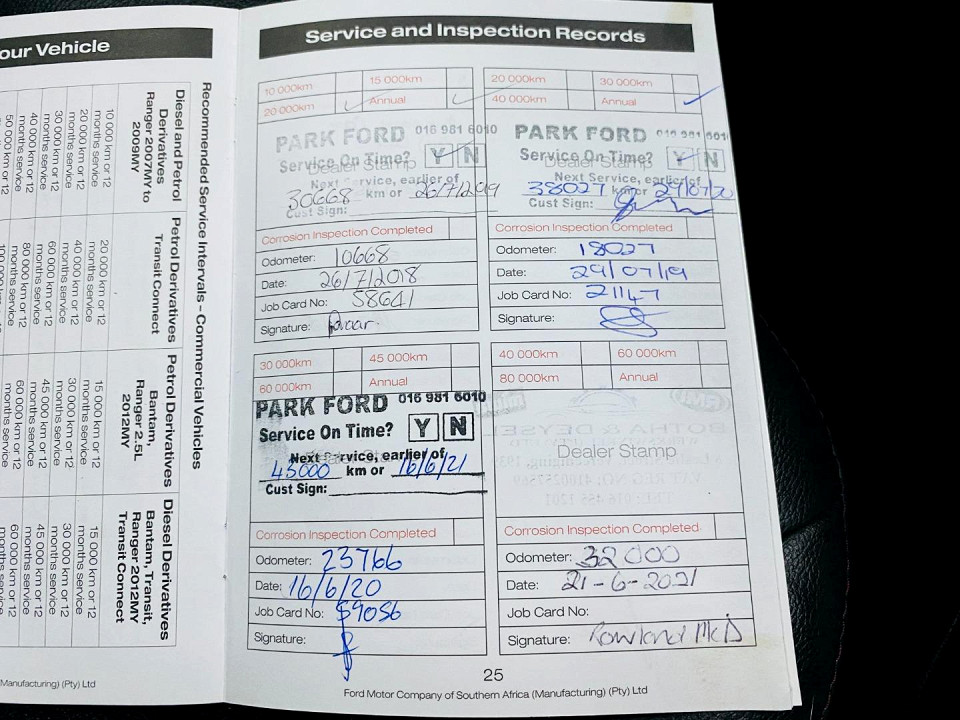 our Vehicle
Recommended Service Intervals - Commercial Vehicles
Diesel and Petrol
Derivatives
Ranger 2007MY to
2009MY
10 000 km or 12
months service
20 000 km or 12
months service
30 000 km or 12
months service
40 000 km or 12
months service
50 000 km or 12
Petrol Derivatives
Transit Connect
20 000 km or 12
months service
40 000 km or 12
months service
60 000 km or 12
months service
80 000 km or 12
months service
100 000 km or 12
Petrol Derivatives
Bantam,
Ranger 2.5L
2012MY
15 000 km or 12
months service
30 000 km or 12
months service
45 000 km or 12
months service
60 000 km or 12
months service
Diesel Derivatives
Bantam, Transit,
Ranger 2012MY
Transit Connect
15 000 km or 12
months service
30 000 km or 12
months service
45 000 km or 12
months service
60 000 km or 12
months service
Manufacturing) (Pty) Ltd
Service and Inspection Records
10 000km 15 000km
20 000km Annual
PARK FORD 016 981 6010
Service On Time? Y N
Dealer Stamp
Next Service, earlier of
30668 km or 26/7/2019
Cust Sign:
Corrosion Inspection Completed
Odometer: 10668
Date: 26/7/2018
Job Card No: 58641
Signature:
20 000km 30 000km
40 000km Annual
PARK FORD 016 981 601
Service On Time? Y N
Dealer Stamp
Next Service, earlier of
38027 km or 29/07/20
Cust Sign:
Corrosion Inspection Completed
Odometer: 18027
Date: 29/07/19
Job Card No: 21147
Signature:
30 000km 45 000km
60 000km Annual
PARK FORD 016 981 6010
Service On Time? Y N
Next Service, earlier of
43000 km or 16/6/21
Cust Sign:
Corrosion Inspection Completed
Odometer: 23766
Date: 16/6/20
Job Card No: 59056
Signature:
40 000km 60 000km
80 000km Annual
Dealer Stamp
Corrosion Inspection Completed
Odometer: 32000
Date: 21-6-2021
Job Card No:
Signature: Rowland McD
25
Ford Motor Company of Southern Africa (Manufacturing) (Pty) Ltd